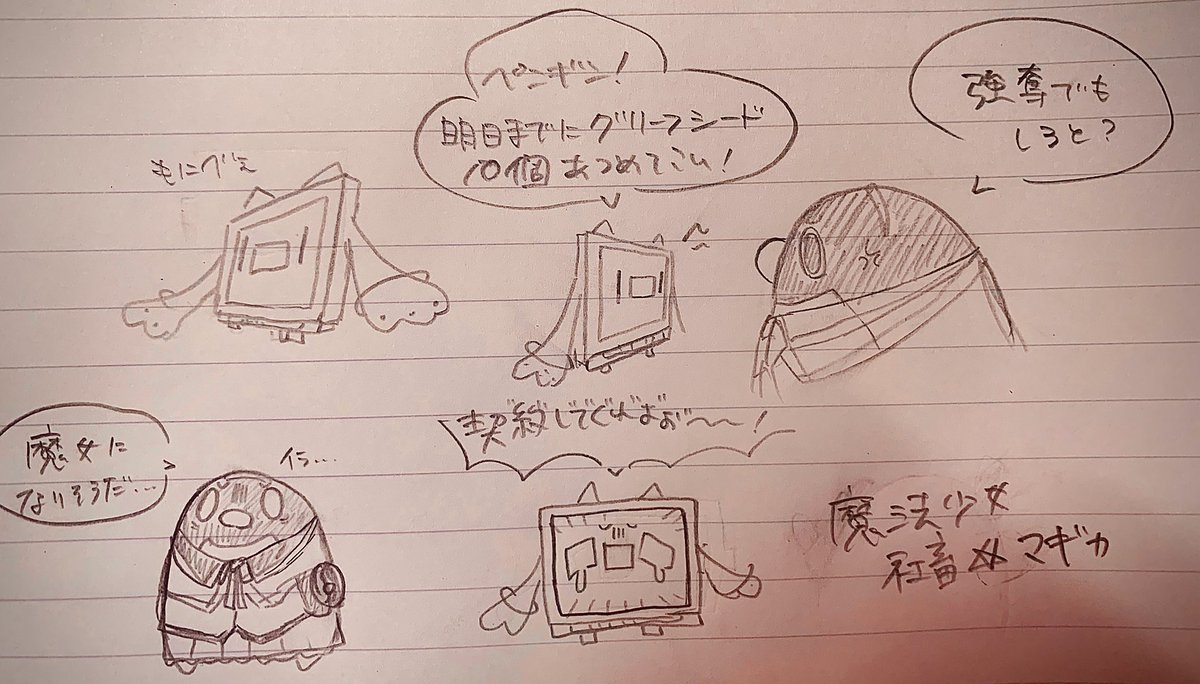 もにべえ
ペンギン！
明日までにグリーフシード
10個あつめてこい！
強奪でも
しろと？
魔女に
なりそうだ…
イラ…
契約してぐればぉ〜〜！
魔法少女
社畜☆マギカ